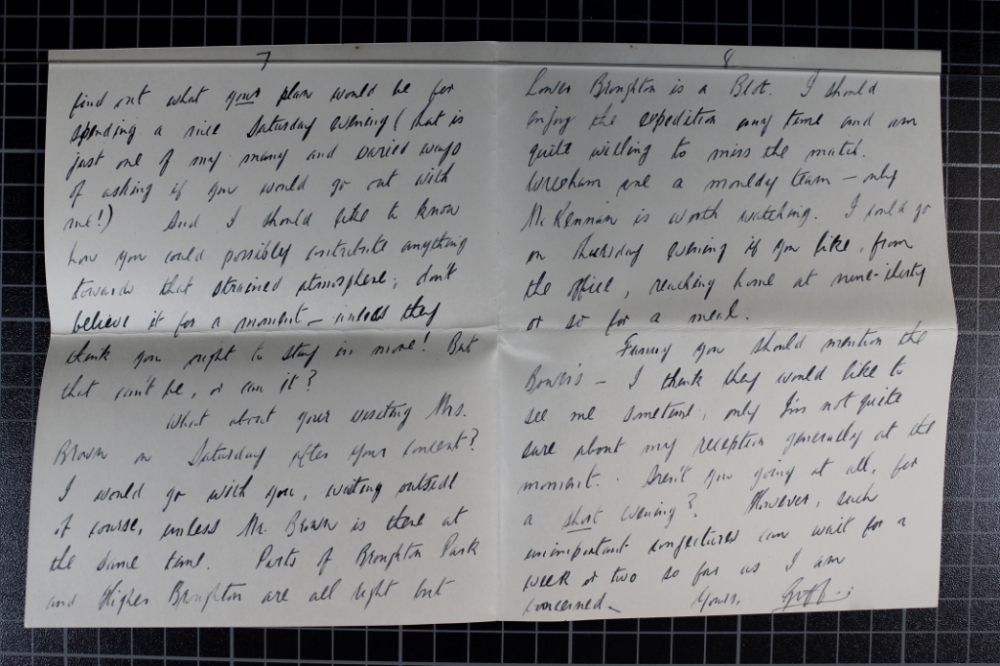 7
find out what your plan would be for
spending a nice Saturday evening (that is
just one of my many and varied ways
of asking if you would go out with
me!) And I should like to know
how you could possibly contribute anything
towards that strained atmosphere; don't
believe it for a moment – unless they
think you ought to stay in more! But
that can't be, or can it?
What about your visiting Mrs.
Brown on Saturday after your concert?
I would go with you, waiting outside
of course, unless Mr. Brown is there at
the same time. Parts of Broughton Park
and Higher Broughton are all right but
8
Lower Broughton is a Blot. I should
enjoy the expedition any time and am
quite willing to miss the match.
Wrexham are a mouldy team – only
McKennan is worth watching. I could go
on Thursday evening if you like, from
the office, reaching home at nine-thirty
or so for a meal.
Funny you should mention the
– I think they would like to
see me sometime, only I'm not quite
sure about my reception generally at the
moment. Aren't you going at all, for
a short evening? However, such
unimportant conjectures can wait for a
week or two so far as I am
concerned –
Yours,